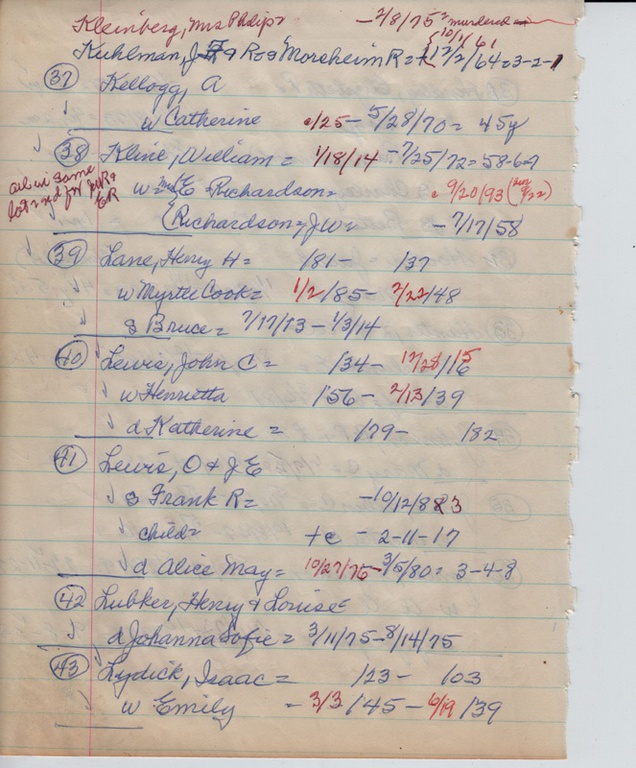 Kleinberg, Mrs Philip - 2/8/75 murdered
Kuhlman, J & Ros Morsheim R = 10/1/61 12/2/64 = 3-2-1
37 Kellogg, A
w Catherine c/25 - 5/28/70 = 45y
38 Kline, William = 1/18/14 - 7/25/72 = 58-6-7
all in same lot
w = E = Richardson = c 9/20/93
(Richardson = JW = - 7/17/58
39 Lane, Henry H = /81 - /37
w Myrtle Cook = 1/2/85 - 2/22/48
s Bruce = 7/17/13 - 1/3/14
40 Lewis, John C = /34 - 12/28/15
w Henrietta /56 - 2/13/39
d Katherine = /79 - /82
41 Lewis, O & J E
s Frank R = - 10/12/83
child = - 2-11-17
d Alice May = 10/27/76 - 3/5/80 = 3-4-8
42 Lubker, Henry & Louise
d Johanna Sofie = 3/11/75 - 8/14/75
43 Lydick, Isaac = /23 - /03
w Emily - 3/3/45 - 6/19/39